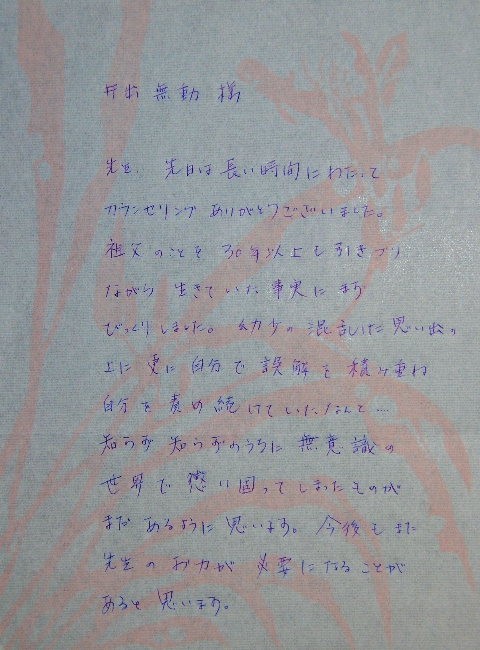 井出 無動 様
先生、先日は長い時間にわたって
カウンセリング ありがとうございました。
祖父のことを 30年以上も引きづり
ながら 生きていた事実に まず
びっくりしました。幼少の 混乱した思い出の
上に 更に自分で 誤解を 積み重ね
自分を 責め続けていたなんて…
知らず 知らずのうちに 無意識の
世界で 凝り固ってしまったものが
まだ あるように 思います。今後も また
先生の お力が 必要になることが
あると 思います。